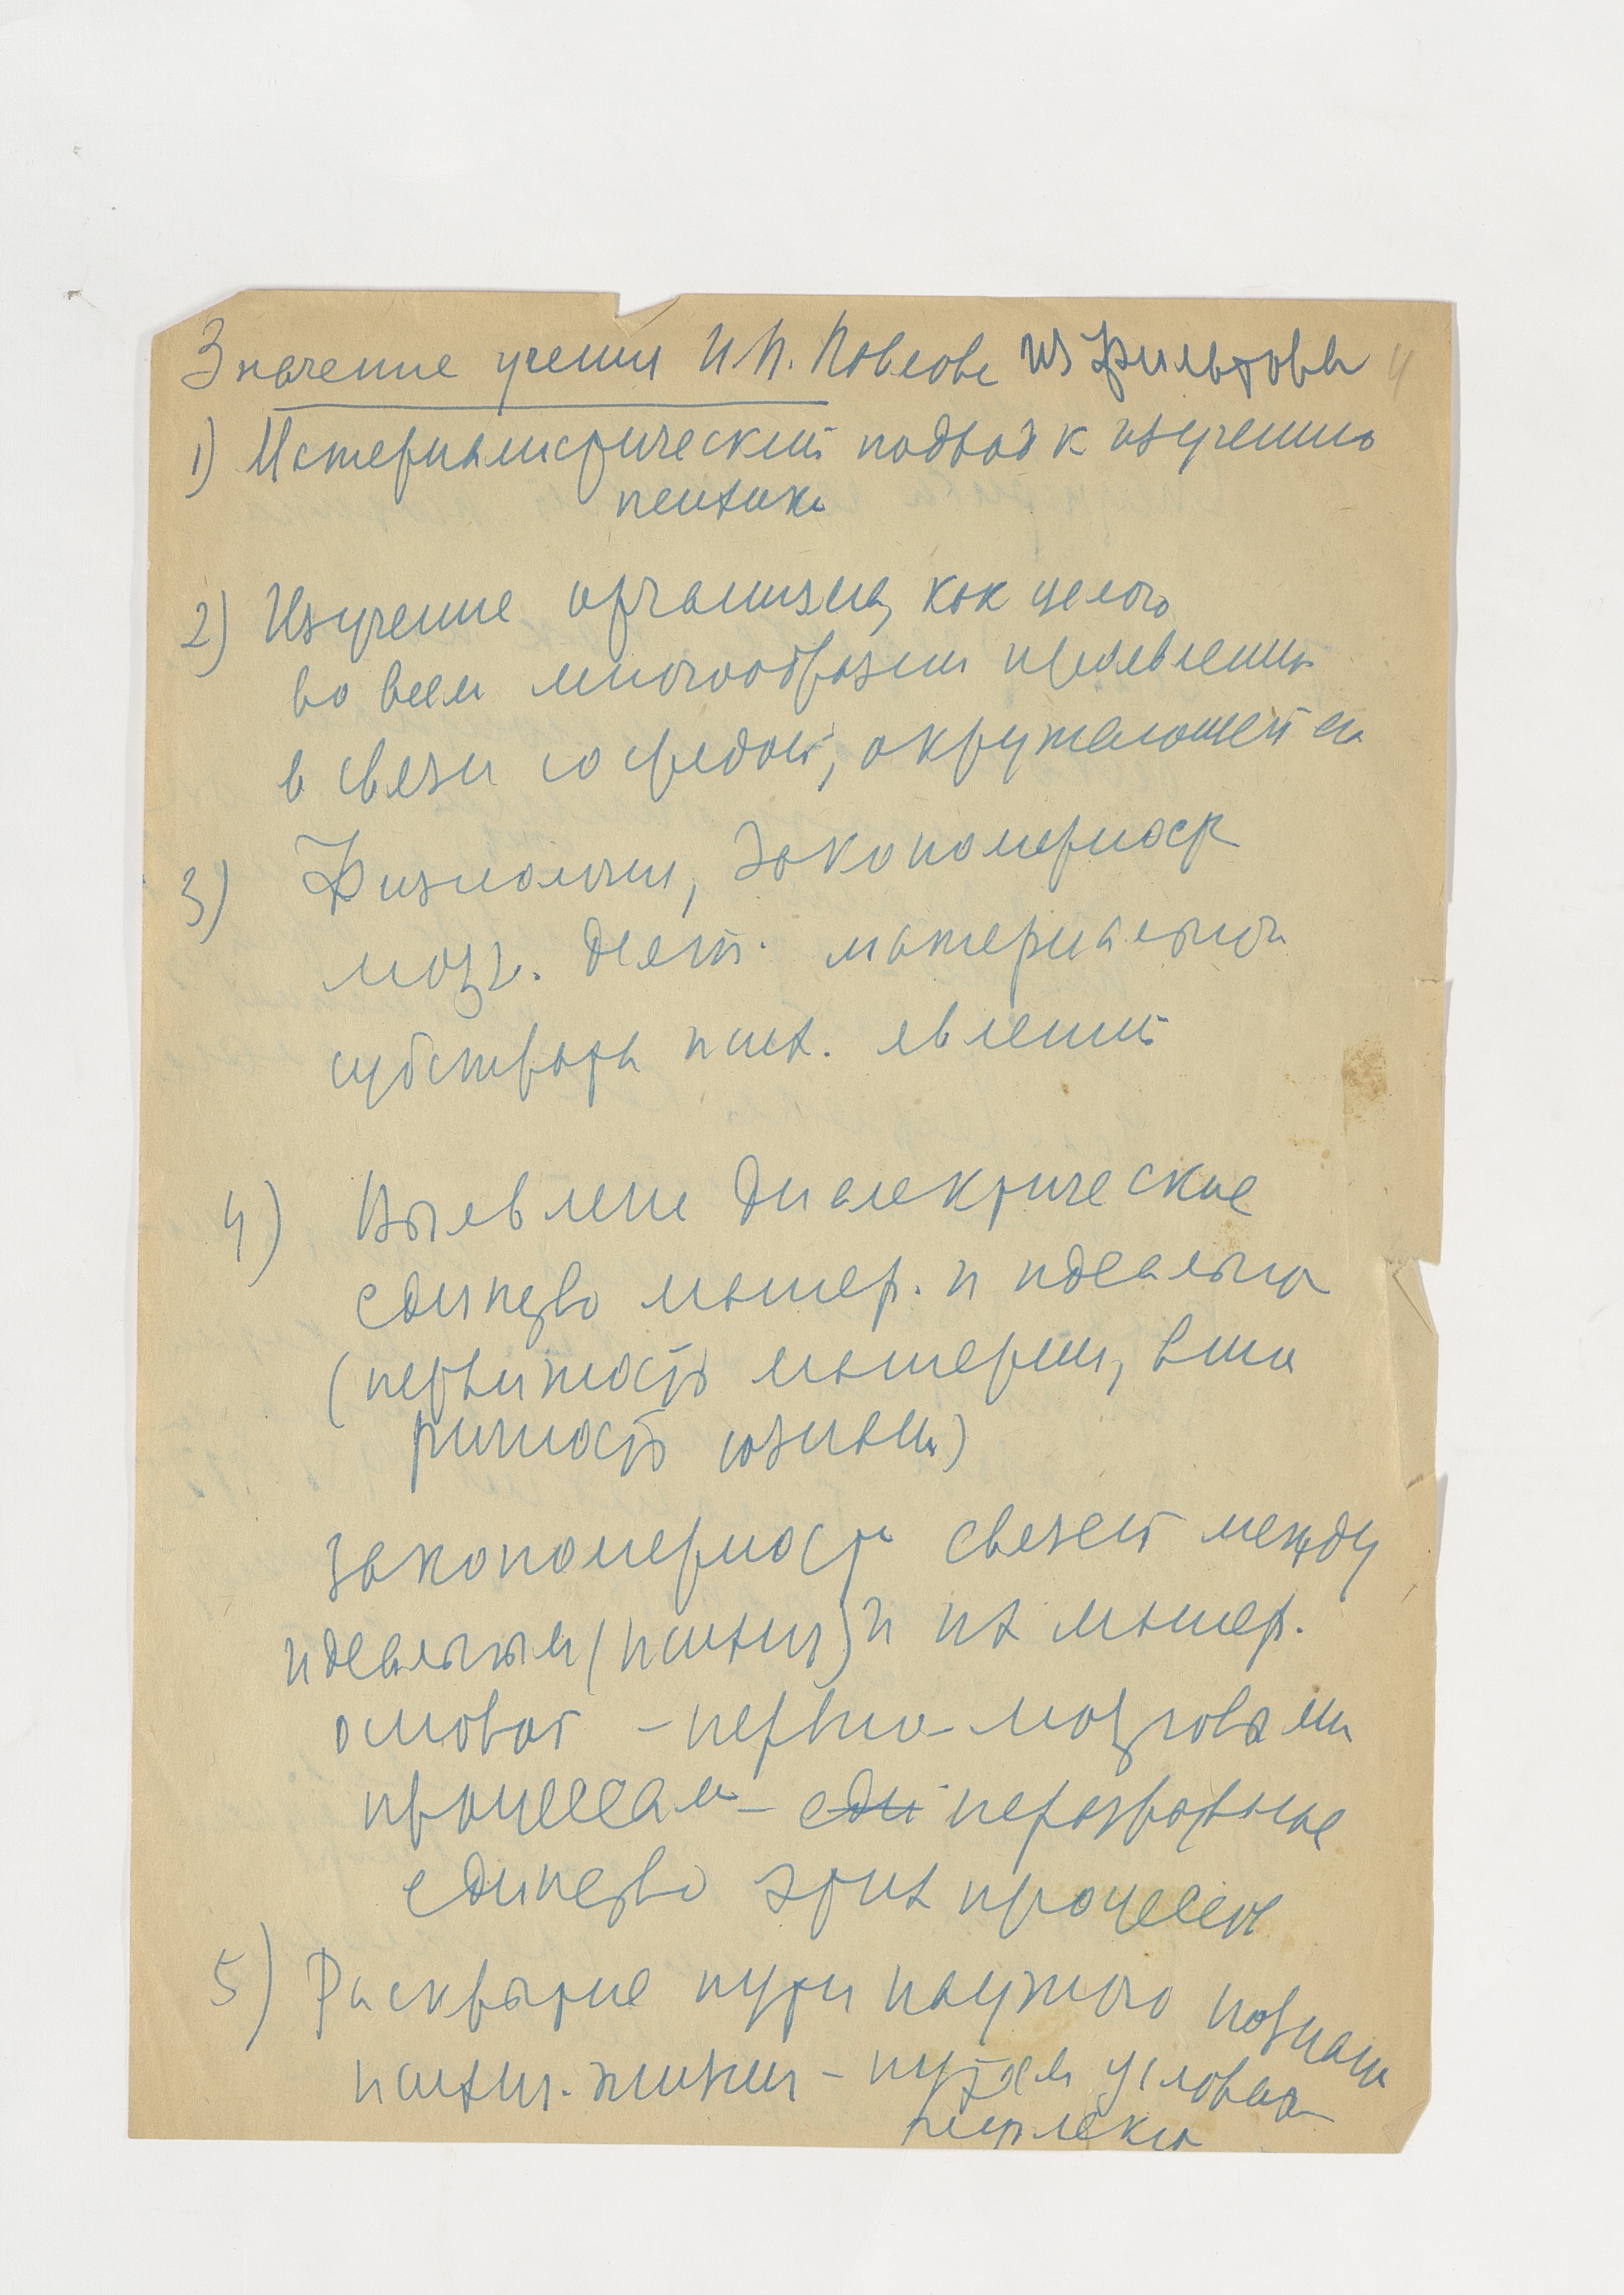 Значение учения И.П. Павлова из Фильтова 4
1) Материалистический подход к изучению
психики
2) Изучение организма, как целого
во всем многообразии проявлений
в связи со средой, окружающей его
3) Физиологич, закономерност
мозг. деят. материальног
субстрата псих. явлений
4) Выявлене диалектическое
единство матер. и идеальног
(первичность материи, вто
ричность сознания)
закономерност связей между
идеальными (психич) и их матер.
основой – нервно-мозговыми
процессами – еди неразрывное
единство этих процессов
5) Раскрытие пути научного познани
психич. жизни – путем условног
рефлекса